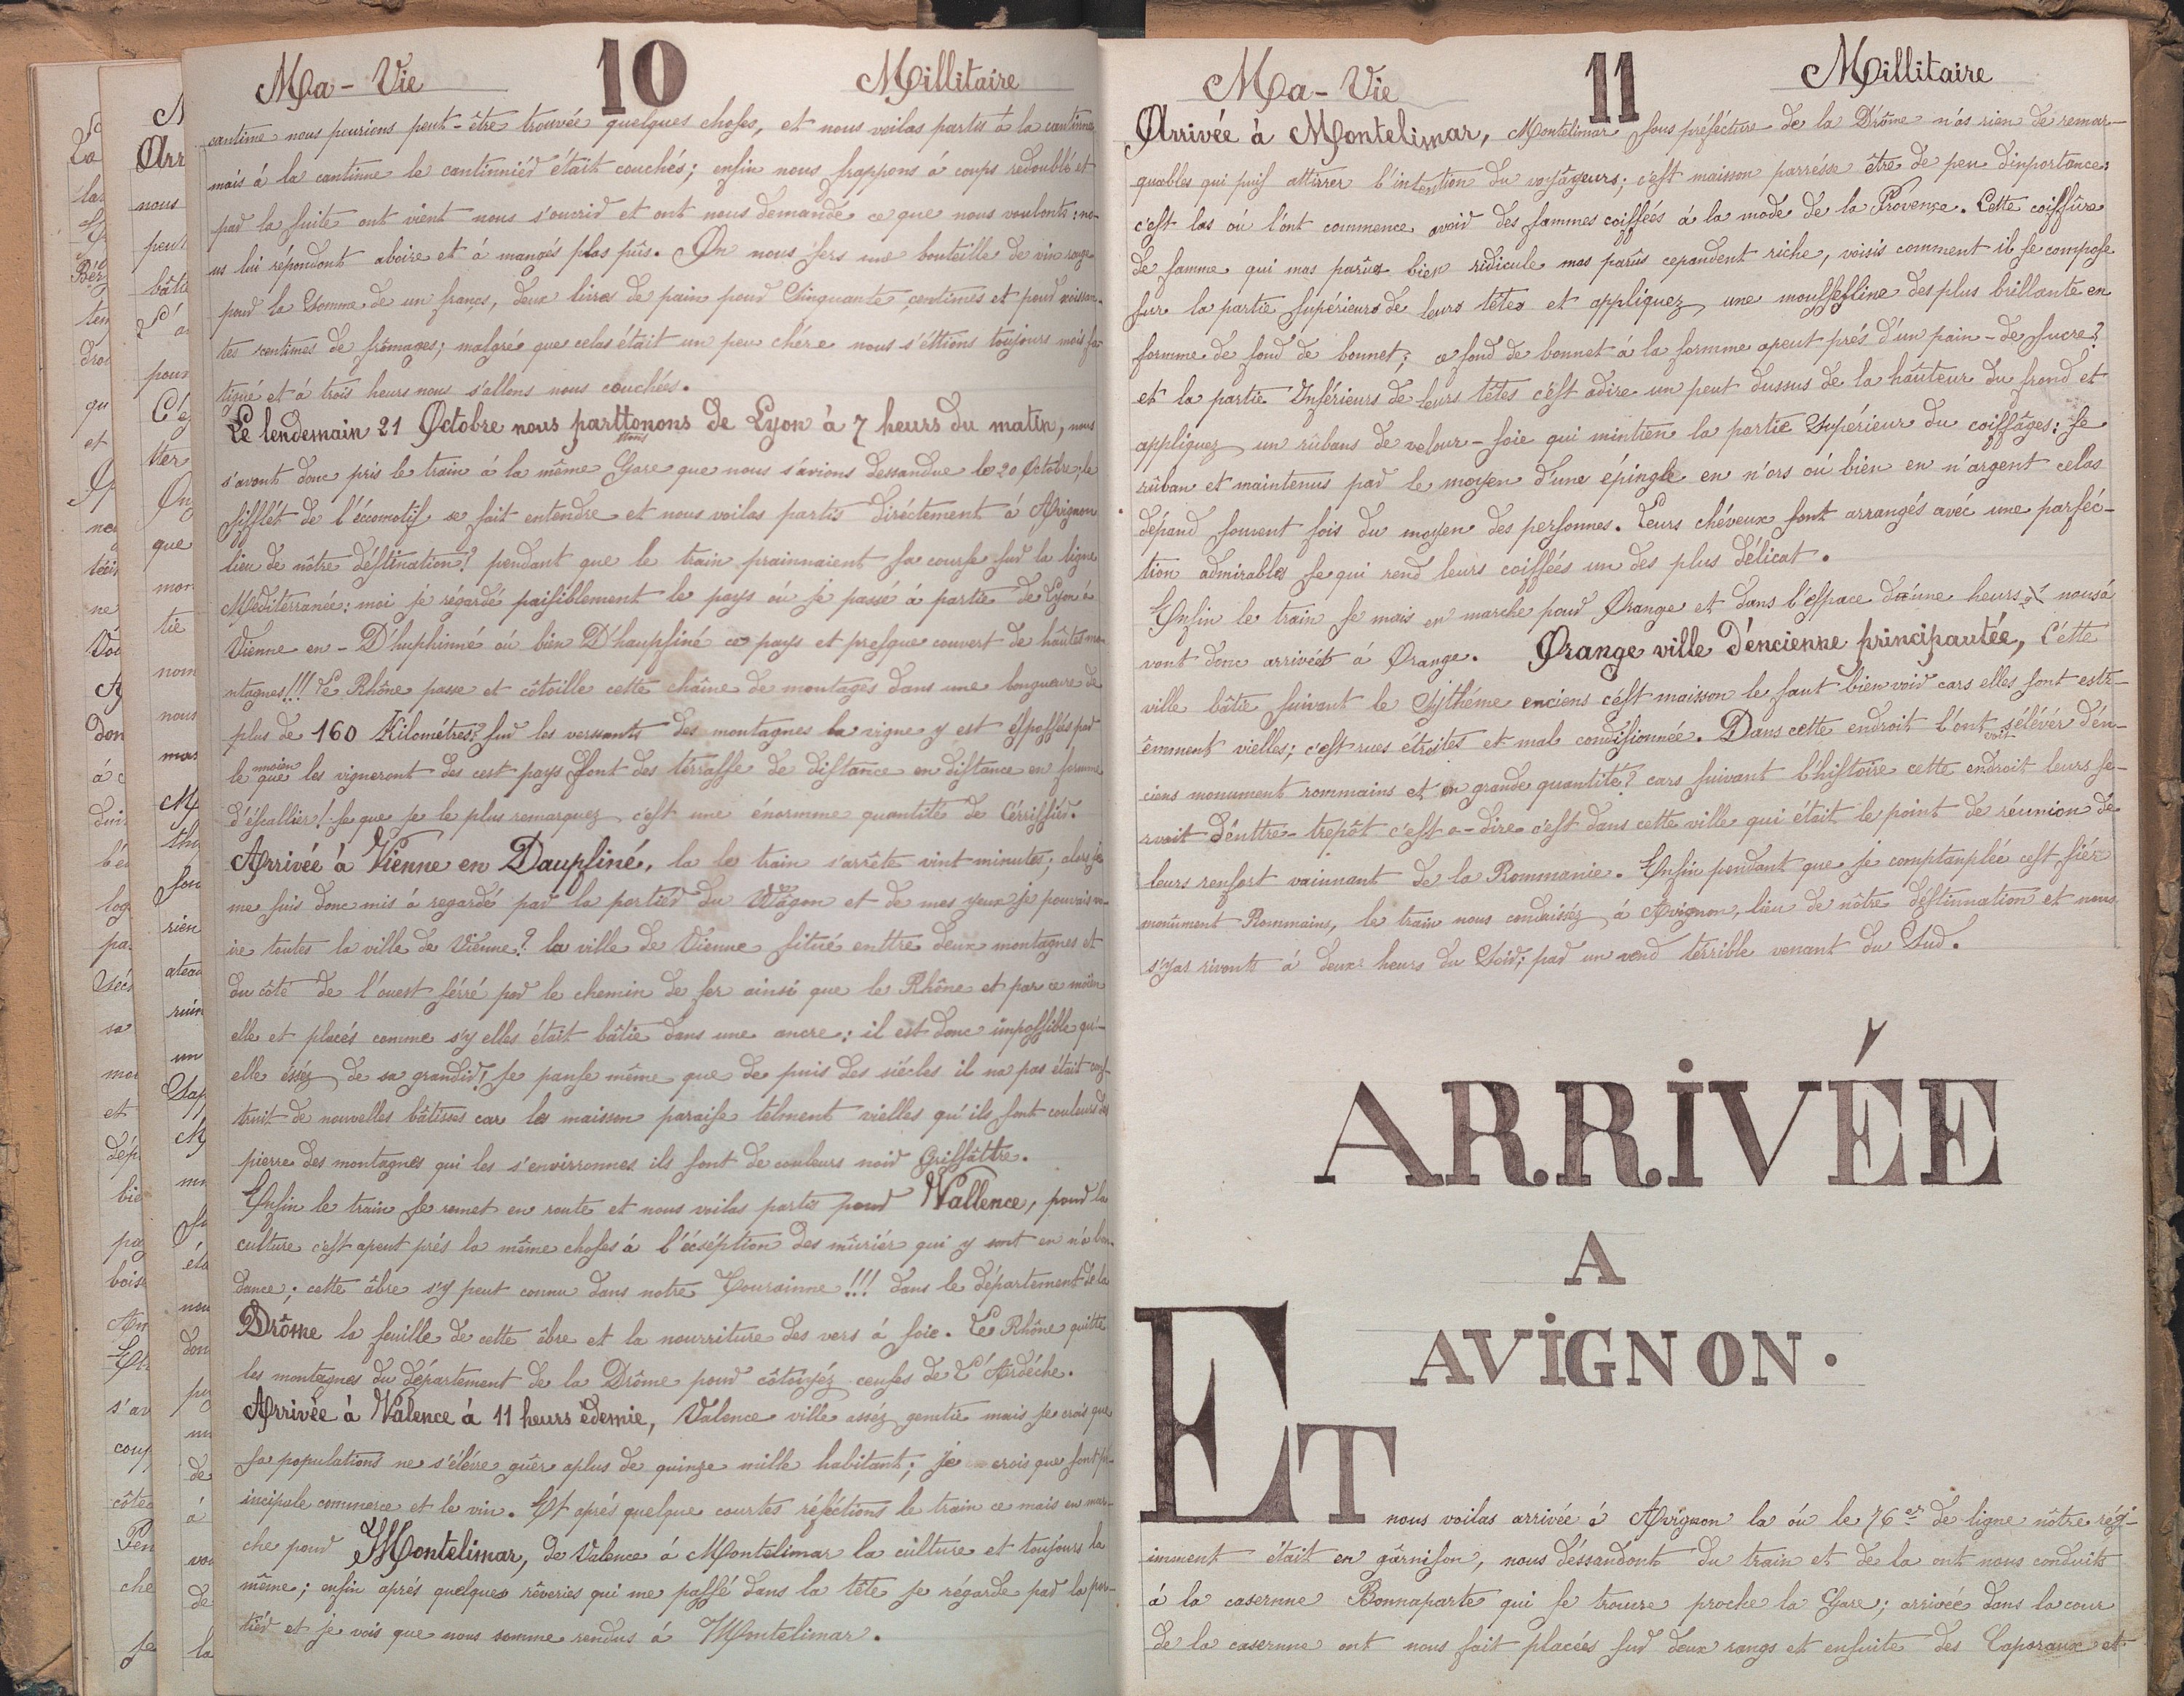 Ma - Vie 10 Millitaire
cantinne nous pourions peut-être trouvée quelques choses, et nous voilas partis à la cantinne
mais á la cantinne le cantinniér était couchés; enfin nous frappons á coups redoublé et
par la suite ont vient nous s'ouvrir et ont nous demandé ce que nous voulonts: no-
us lui répondont aboire et á mangés plas pûis. On nous sers une bouteille de vin rouge
pour la Somme de un françs, deux livres de pain pour Cinquante çentimes et pour soissan-
tes sentimes de frômages; malgré que celas était un peu chére nous s'éttions toujours mois fa
tigué et á trois heurs nous s'allons nous couchées.
Le lendemain 21 Octobre nous parttonons de Lyon à 7 heurs du matin, nous
s'avont donc pris le train á la même Gare que nous s'avions dessandue le 20 Octobre, le
sifflét de l'éccomotif se fait entendre et nous voilas partis diréctement á Avignon
lieu de nôtre déstination? pendant que le train prainnaient sa course sur la ligne
Méditerranée: moi je régardé paisiblement le pays oú je passé á partie de Lyon á
Vienne en - D'huphinné oú bien D'haupfiné ce pays et presque couvert de hâutes mo-
ntagnes!!! Le Rhône passe et côtoille cette chaîne de montages dans une longueure de
plus de 160 Kilométres? sur les versants des montagnes la vigne y est éspossés par
le moien que les vigneront des cest pays font des térrasse de distance en distance en forme
d'éscallier! se que je le plus remarquez c'est une énormme quantité de Cérrissiér.
Arrivée à Vienne en Daupfiné, la le train s'arrête vint minutes; alors je
me suis donc mis á regardé par la portiér du Wâgon et de mes yeux je pouvais vo-
ire toutes la ville de Vienne? la ville de Vienne situé enttre deux montagnes et
du côté de l'ouest sérré par le chemin de fer ainsi que le Rhône et par ce moïen
elle et placés comme s'y elles était bâtie dans une ancre: il est donc impossible qu'-
elle éssez de sa grandir! Je panse même que de puis des siécles il na pas était cons-
truit de nouvelles bâtisses car les maisson paraisse telment vielles qu'ils sont couleurs des
pierre des montagnes qui les s'envirronnes ils sont de couleurs noir Grissâttre.
Enfin le train se remet en route et nous voilas partis pour Wallence, pour la
culture c'est apeut prés la même choses á l'écséption des mûriér qui y sont en n'a bon-
dance; cette âbre s'y peut connu dans notre Tourainne!!! dans le département de la
Drôme la feuille de cette âbre et la nourriture des vers á soie. Le Rhône quitte
les montagnes du département de la Drôme pour côtoiyéz ceuses de L'Ardéche.
Arrivée à Walence à 11 heurs édemie, Valence ville asséz gentie mais je crois que
sa populations ne s'élére guêr aplus de quinze mille habitant; je crois que sont pr-
incipale commerce et le vin. Et aprés quelque courtes réfléctions le train ce mais en mar-
che pour Montelimar, de Valence á Montelimar la culture et toujours la
même; enfin aprés quelques rêveries qui me passé dans la tête je régarde par la por-
tiér et je vois que nous somme rendus á Montelimar.
Ma - Vie 11 Millitaire
Arrivée à Montelimar, Montelimar sous préfécture de la Drôme n'as rien de remar-
quables qui puis attirrer l'intention du voyâgeurs; c'est maisson parrésse être de peu d'inportance:
c'est las oú l'ont commence avoir des fammes coifféés á la mode de la Provençe. Cette coiffûre
de famme qui mas parûs bien ridicule mas parûs cepandent riche, voisis comment il se compose
sur la partie supérieurs de leurs têtes et appliquez une mousseline des plus brillante en
formme de fond de bonnet; ce fond de bonnet á la formme apeut prés d'un pain-de sucre?
et la partie Inférieurs de leurs têtes c'ést adire un peut dussus de la hâuteur du frond et
appliquez un rubans de velour-soie qui mintien la partie Supérieur du coiffâges: se
rûban et maintenus par le moyen d'une épingle en n'ors oú bien en n'argent celas
dépand souvent fois du moyen des personnes. Leurs chéveux sont arrangés avéc une parféc-
tion admirables se qui rend leurs coiffées un des plus délicat.
Enfin le train se mais en marche pour Orange et dans l'espace d'une heurs nous á
vont donc arrivéét á Orange. Orange ville d'éncienne principautée, Cétte
ville bâtie suivant le Systhéme enciens cést maisson le faut bien voir cars elles sont estr-
êmment vielles; c'est rues étroites et mal condisionnée. Dans cette endroit l'ont voit s'élévér d'én-
ciens monument rommains et en grande quantité? cars suivant l'histoire cette endroit leurs se-
rvait d'énttre-trepôt c'est a-dire c'est dans cette ville qui était le point de réunion de
leurs renfort vainnant de la Rommanie. Enfin pendant que je comptanplée cest fiér
monûment Rommains, le train nous conduisséz á Avignon, lieu de nôtre déstinnation et nous
s'yas rivonts á deux heurs du Soir; par un vend terrible venant du Sud.
ARRIVÉE
A
AVIGNON.
ET nous voilas arrivée á Avignon la oú le 76er de ligne nôtre régi-
imment était en gârnison, nous déssandont du train et de la ont nous conduits
á la casernne Bonnaparte qui se trouvre proche la Gare; arrivée dans la cour
de la casernne ont nous fait placées sur deux rangs et ensuite des Caporaux et